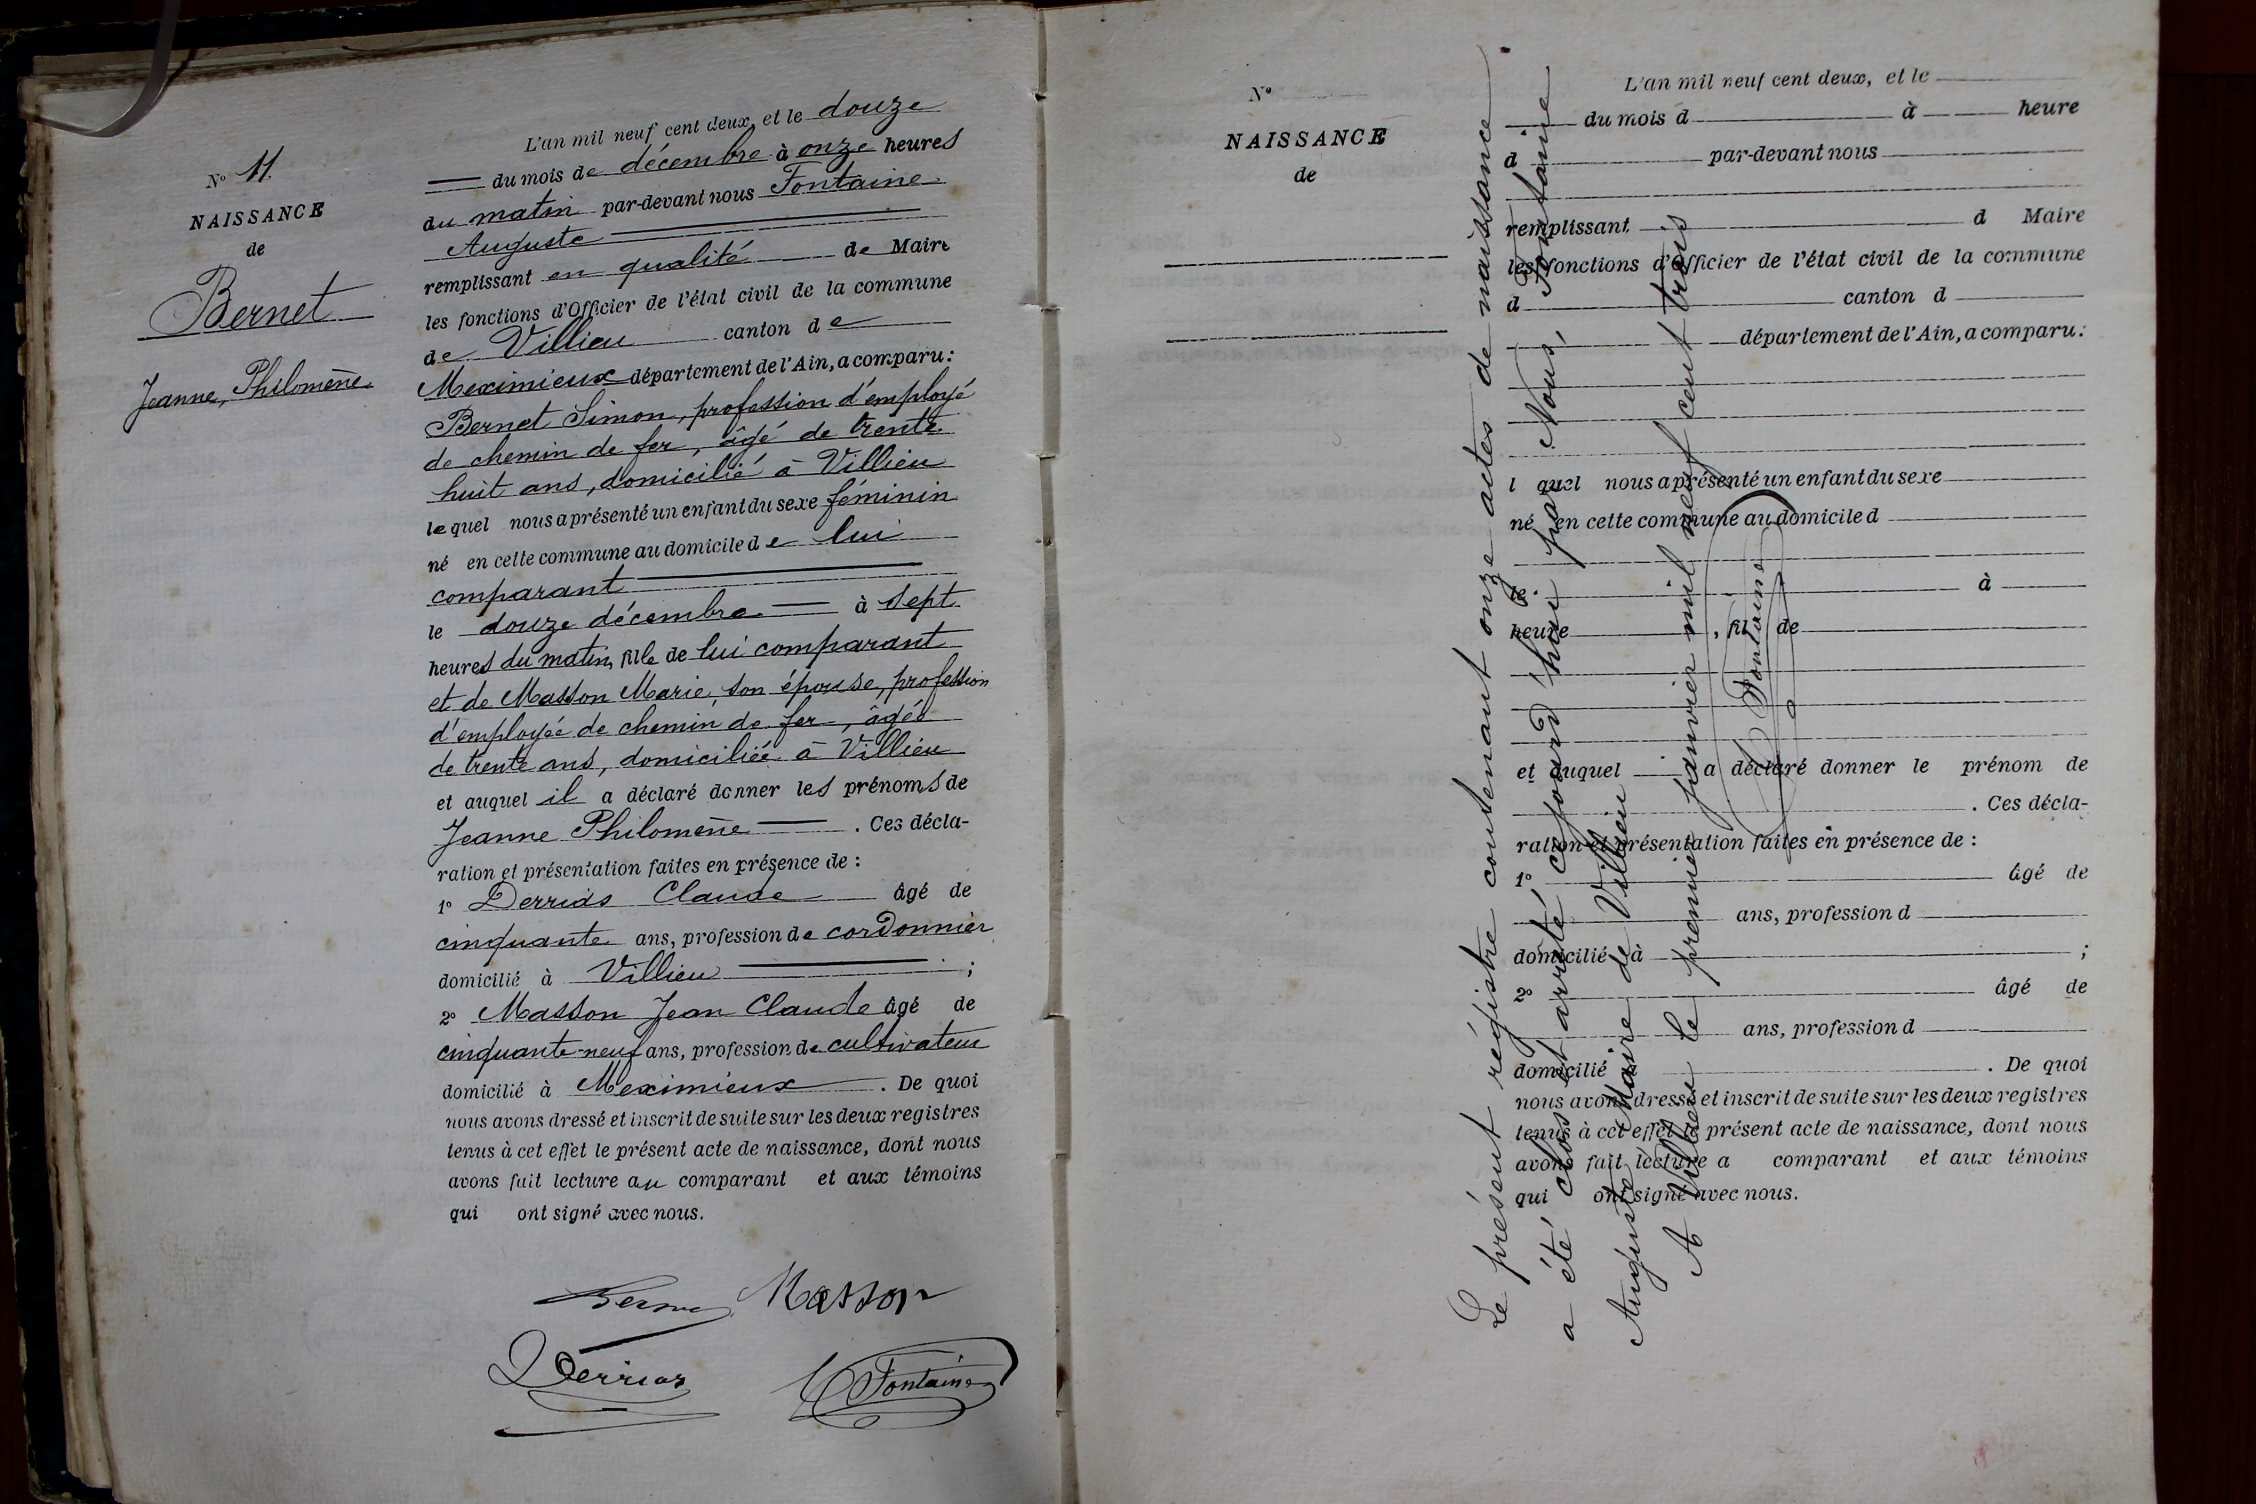 N° 11.
NAISSANCE
de
Bernet
Jeanne, Philomène
L'an mil neuf cent deux, et le douze
du mois de décembre à onze heures
du matin par-devant nous Fontaine
Auguste
remplissant en qualité de Maire
les fonctions d'Officier de l'état civil de la commune
de Villieu canton de
Meximieux département de l'Ain, a comparu:
Bernet Simon, profession d'employé
de chemin de fer, âgé de trente
huit ans, domicilié à Villieu
lequel nous a présenté un enfant du sexe féminin
né en cette commune au domicile de lui
comparant
le douze décembre à sept
heures du matin, fille de lui comparant
et de Masson Marie, son épouse, profession
d'employée de chemin de fer, âgée
de trente ans, domiciliée à Villieu
et auquel il a déclaré donner les prénoms de
Jeanne Philomène . Ces décla-
ration et présentation faites en présence de :
1° Derrias Claude âgé de
cinquante ans, profession de cordonnier
domicilié à Villieu ;
2° Masson Jean Claude âgé de
cinquante-neuf ans, profession de cultivateur
domicilié à Meximieux . De quoi
nous avons dressé et inscrit de suite sur les deux registres
tenus à cet effet le présent acte de naissance, dont nous
avons fait lecture au comparant et aux témoins
qui ont signé avec nous.
Masson
Derrias
Fontaine
N°
NAISSANCE
de
L'an mil neuf cent deux, et le
du mois d à heure
d par-devant nous
remplissant d Maire
les fonctions d'Officier de l'état civil de la commune
d canton d
département de l'Ain, a comparu:
l quel nous a présenté un enfant du sexe
né en cette commune au domicile d
le à
heure , fil de
et auquel a déclaré donner le prénom de
. Ces décla-
ration et présentation faites en présence de :
1° âgé de
ans, profession d
domicilié à ;
2° âgé de
ans, profession d
domicilié à . De quoi
nous avons dressé et inscrit de suite sur les deux registres
tenus à cet effet le présent acte de naissance, dont nous
avons fait lecture a comparant et aux témoins
qui ont signé avec nous.
Le présent régistre contenant onze actes de naissance
a été clos et arrêté cejourd'hui par Nous, Fontaine
Auguste Maire de Villieu
A Villieu le premier janvier mil neuf cent trois
Fontaine